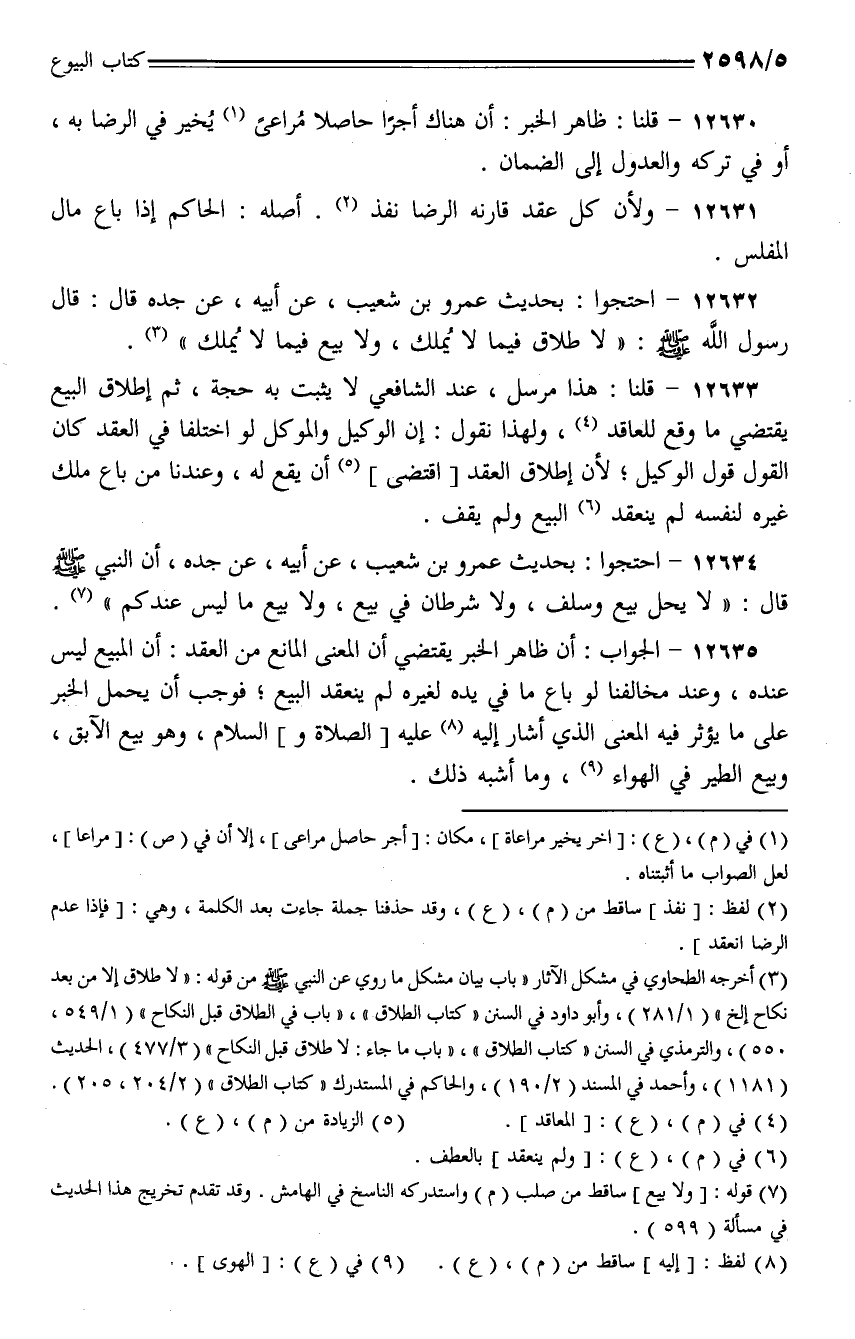 ٢٥٩٨/٥ كتاب البيوع
١٢٦٣٠ - قلنا : ظاهر الخبر : أن هناك أجرًا حاصلا مُراعىً (١) يُخير في الرضا به ،
أو في تركه والعدول إلى الضمان .
١٢٦٣١ - ولأن كل عقد قارنه الرضا نفذ (٢) . أصله : الحاكم إذا باع مال
المفلس .
١٢٦٣٢ - احتجوا : بحديث عمرو بن شعيب ، عن أبيه ، عن جده قال : قال
رسول اللَّه ﷺ : « لا طلاق فيما لا يُملك ، ولا بيع فيما لا يُملك » (٣) .
١٢٦٣٣ - قلنا : هذا مرسل ، عند الشافعي لا يثبت به حجة ، ثم إطلاق البيع
يقتضي ما وقع للعاقد (٤) ، ولهذا نقول : إن الوكيل والموكل لو اختلفا في العقد كان
القول قول الوكيل ؛ لأن إطلاق العقد [ اقتضى ] (٥) أن يقع له ، وعندنا من باع ملك
غيره لنفسه لم ينعقد (٦) البيع ولم يقف .
١٢٦٣٤ - احتجوا : بحديث عمرو بن شعيب ، عن أبيه ، عن جده ، أن النبي ﷺ
قال : « لا يحل بيع وسلف ، ولا شرطان في بيع ، ولا بيع ما ليس عندكم » (٧) .
١٢٦٣٥ - الجواب : أن ظاهر الخبر يقتضي أن المعنى المانع من العقد : أن المبيع ليس
عنده ، وعند مخالفنا لو باع ما في يده لغيره لم ينعقد البيع ؛ فوجب أن يحمل الخبر
على ما يؤثر فيه المعنى الذي أشار إليه (٨) عليه [ الصلاة و ] السلام ، وهو بيع الآبق ،
وبيع الطير في الهواء (٩) ، وما أشبه ذلك .
(١) في ( م ) ، ( ع ) : [ اخر يخير مراعاة ] ، مكان : [ أجر حاصل مراعى ] ، إلا أن في ( ص ) : [ مراعا ] ،
لعل الصواب ما أثبتناه .
(٢) لفظ : [ نفذ ] ساقط من ( م ) ، ( ع ) ، وقد حذفنا جملة جاءت بعد الكلمة ، وهي : [ فإذا عدم
الرضا انعقد ] .
(٣) أخرجه الطحاوي في مشكل الآثار « باب بيان مشكل ما روي عن النبي ﷺ من قوله : « لا طلاق إلا من بعد
نكاح إلخ » ( ٢٨١/١ ) ، وأبو داود في السنن « كتاب الطلاق » ، « باب في الطلاق قبل النكاح » ( ٥٤٩/١ ،
٥٥٠ ) ، والترمذي في السنن « كتاب الطلاق » ، « باب ما جاء : لا طلاق قبل النكاح » ( ٤٧٧/٣ ) ، الحديث
( ١١٨١ ) ، وأحمد في المسند ( ١٩٠/٢ ) ، والحاكم في المستدرك « كتاب الطلاق » ( ٢٠٤/٢ ، ٢٠٥ ) .
(٤) في ( م ) ، ( ع ) : [ المعاقد ] . (٥) الزيادة من ( م ) ، ( ع ) .
(٦) في ( م ) ، ( ع ) : [ ولم ينعقد ] بالعطف .
(٧) قوله : [ ولا بيع ] ساقط من صلب ( م ) واستدركه الناسخ في الهامش . وقد تقدم تخريج هذا الحديث
في مسألة ( ٥٩٩ ) .
(٨) لفظ : [ إليه ] ساقط من ( م ) ، ( ع ) . (٩) في ( ع ) : [ الهوى ] .